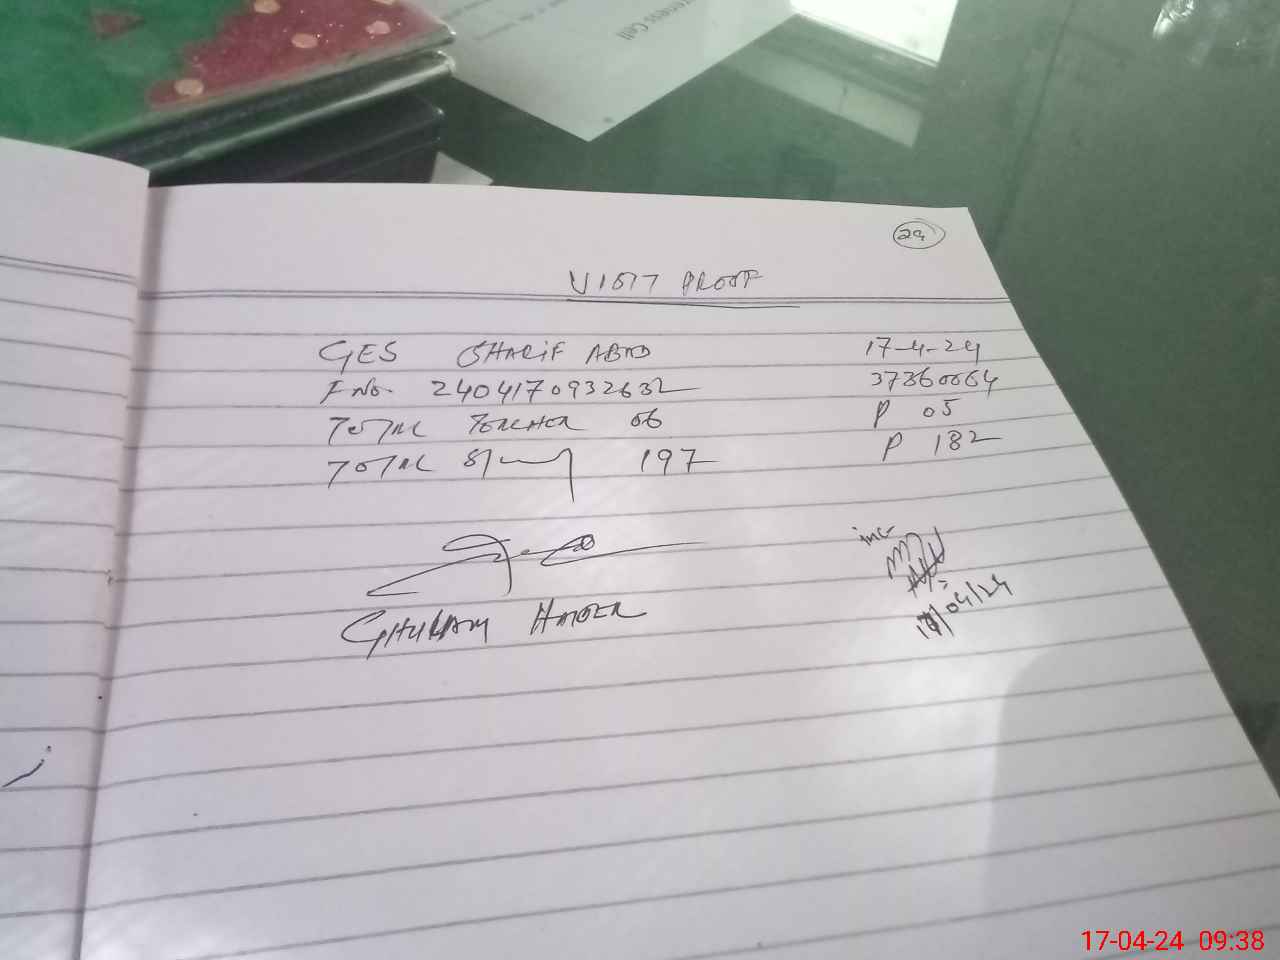 eness Cell
24
VISIT PROOF
GES SHARIF ABAD 17-4-24
F No. 2404170932632 37360064
TOTAL TEACHER 06 P 05
TOTAL 197 P 182
GHULAM HAIDER
inc
17/04/24
17-04-24 09:38